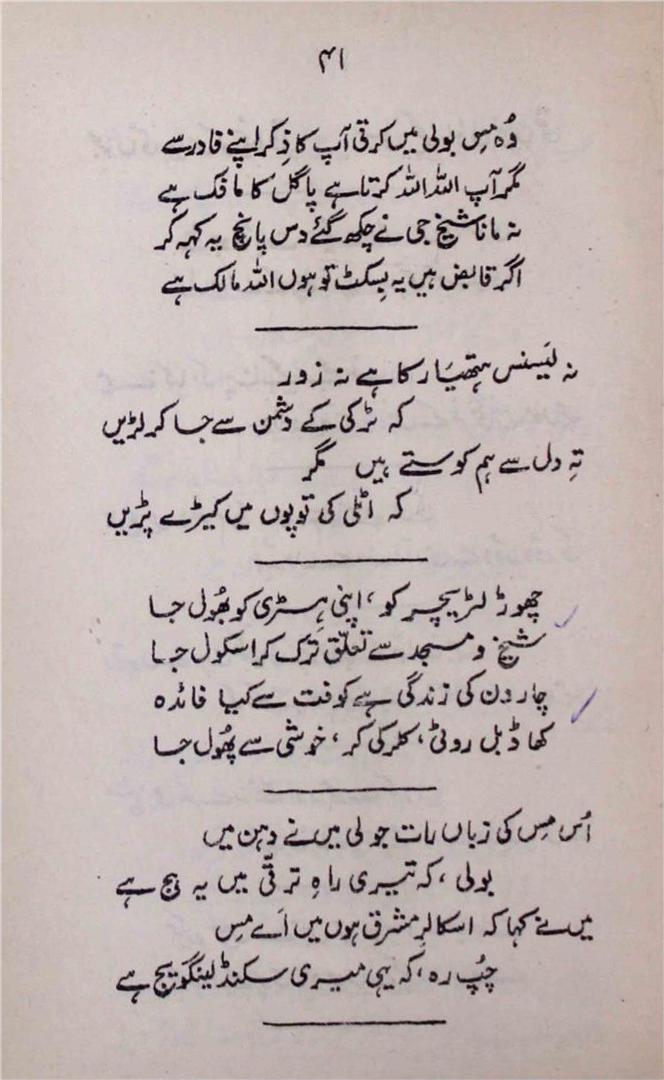 ۴۱
وُہ مِس بولی میں کرتی آپ کا ذِکر اپنے فادر سے
مگر آپ اللہ اللہ کرتا ہے پاگل کا مافک ہے
نہ مانا شیخ جی نے چکھ گئے دس پانچ یہ کہہ کر
اگر قابض ہیں یہ بِسکٹ تو ہوں اللہ مالک ہے
نہ لَیسنس ہتھیَار کا ہے نہ زور
کہ ٹرکی کے دشمن سے جا کر لڑیں
تہِ دل سے ہم کوستے ہیں مگر
کہ اٹلی کی توپوں میں کیڑے پڑیں
چھوڑ لٹریچر کو، اپنی ہِسٹری کو بھُول جا
شیخ و مسجد سے تعلّق ترک کر اسکول جا
چار دن کی زندگی ہے کوفت سے کیا فائدہ
کھا ڈبل روٹی، کلرکی کر، خوشی سے پھُول جا
اُس مِس کی زباں رات جو لی میں نے دہن میں
بولی، کہ تیری راہِ ترقّی میں یہ ہج ہے
میں نے کہا کہ اسکالرِ مشرق ہوں میں اَے مِس
چُپ رہ، کہ یہی میری سکنڈ لینگویج ہے